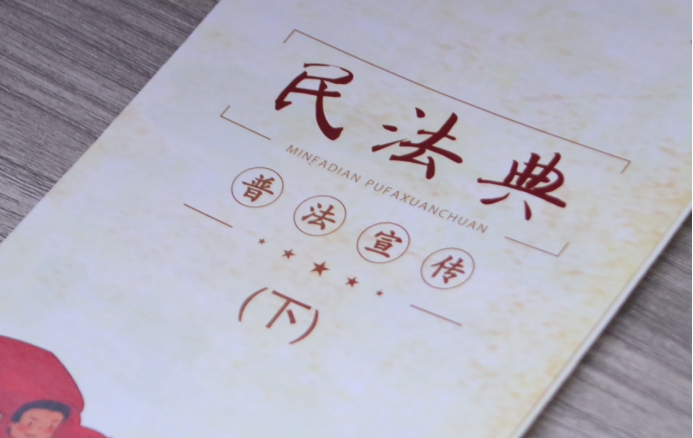 民法典
MINFADIAN PUFAXUANCHUAN
普法宣传
(下)